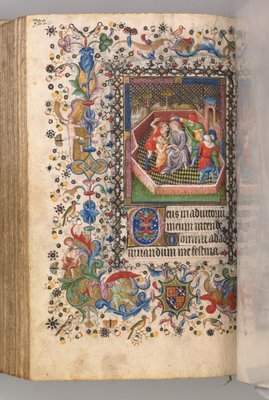 Deus in adiutoriu
meum intende
Domine ad
uuandum me festina